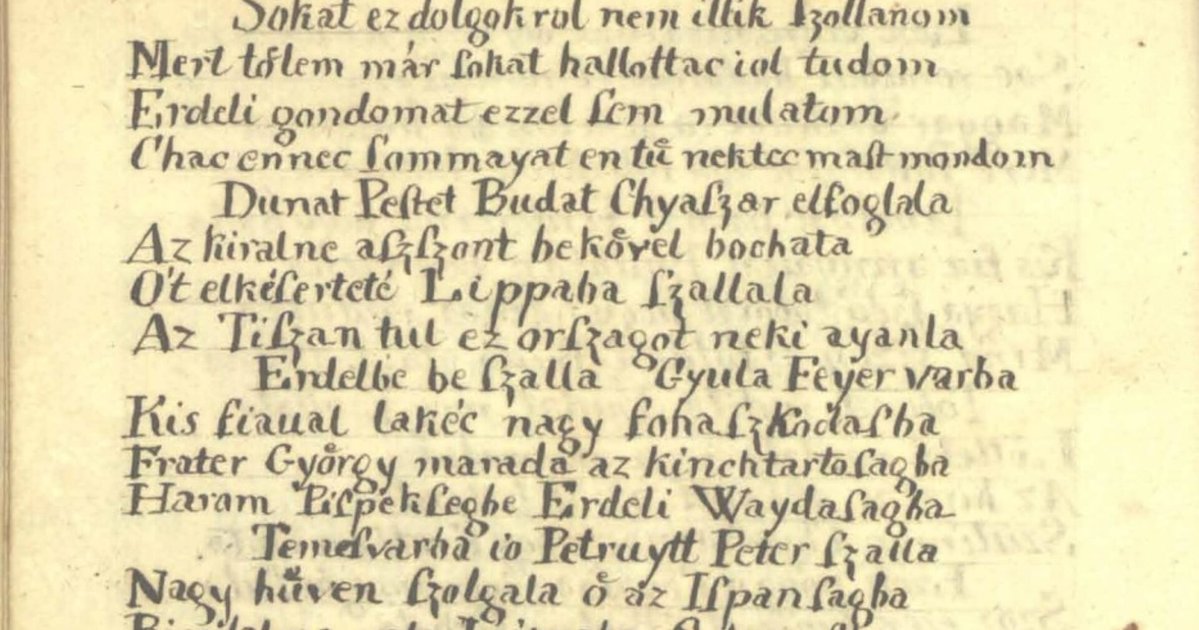 Sokat ez dolgokrol nem illik ſzollanom
Mert tőlem már ſokat hallottac iol tudom
Erdeli gondomat ezzel ſem mulatom
Chac ennec ſommayat en tů nektec maſt mondom
Dunat Peſtet Budat Chyaſzar elfoglala
Az kiralne aſzſzont bekővel bochata
Őt elkéſerteté Lippaba ſzallala
Az Tiſzan tul ez orſzagot neki ayanla
Erdelbe be ſzalla Gyula Feyer varba
Kis fiaual lakéc nagy fohaſzkodaſba
Frater Győrgy marada az kinchtartoſagba
Harom Piſpékſegbe Erdeli Waydaſagba
Temeſvarba io Petruytt Peter ſzalla
Nagy hűven ſzolgala ő az Iſpanſagba